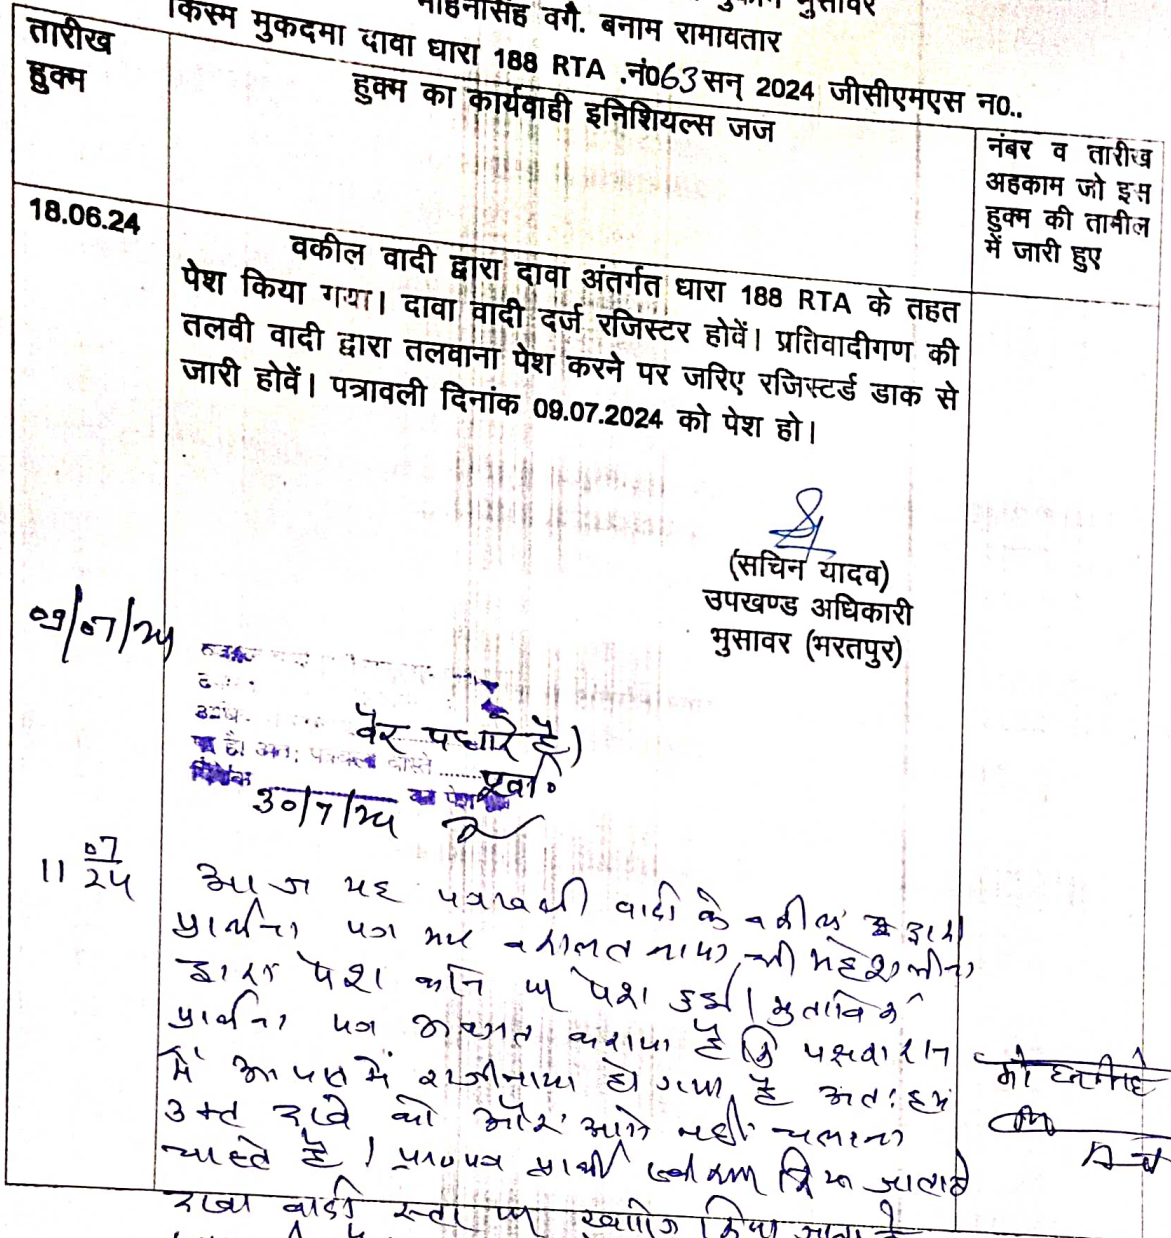 मुकाम भुसावर
मोहनसिंह वगै. बनाम रामावतार
किस्म मुकदमा दावा धारा 188 RTA .नं063 सन् 2024 जीसीएमएस न0..
तारीख
हुक्म
हुक्म का कार्यवाही इनिशियल्स जज
नंबर व तारीख
अहकाम जो इस
हुक्म की तामील
में जारी हुए
18.06.24
वकील वादी द्वारा दावा अंतर्गत धारा 188 RTA के तहत
पेश किया गया। दावा वादी दर्ज रजिस्टर होवें। प्रतिवादीगण की
तलवी वादी द्वारा तलवाना पेश करने पर जरिए रजिस्टर्ड डाक से
जारी होवें। पत्रावली दिनांक 09.07.2024 को पेश हो।
(सचिन यादव)
उपखण्ड अधिकारी
भुसावर (भरतपुर)
09/07/24
वैर पधारे है)
है। अतः पत्रावली वास्ते
पूर्वा०
दिनांक 30/7/24 को पेश
11 07/24
आज यह पत्रावली वादी के वकील द्वारा
प्रार्थना पत्र मय वकालत नामा श्री महेश
द्वारा पेश करने पर पेश हुई। मुताबिक
प्रार्थना पत्र अवगत कराया है कि पक्षकारान
में आपस में राजीनामा हो गया है अतः हम
उक्त दावे को और आगे नहीं चलाना
चाहते है। प्रा०पत्र प्रार्थी स्वीकार किया जाता है
दावा वादी स्तर पर खारिज किया जाता है